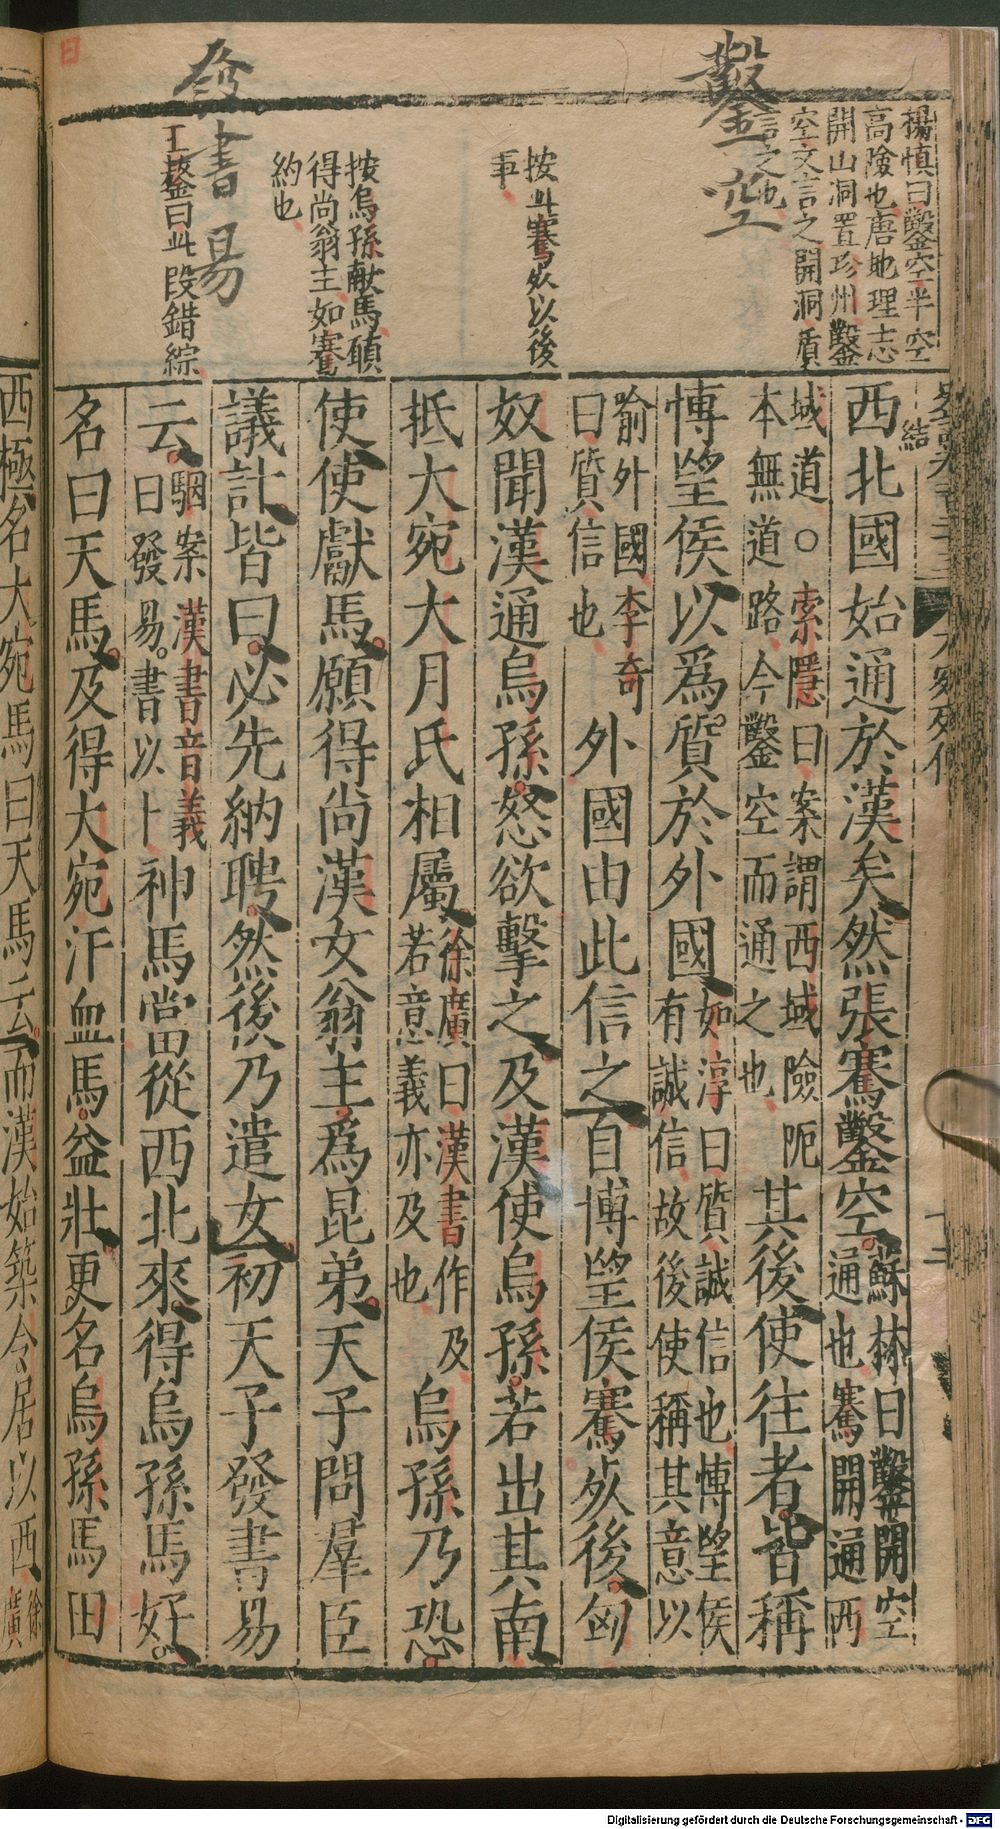 鑿空
楊慎曰鑿空半空
高險也唐地理志
開山洞置珍州鑿
空文言之開洞質
言之也
按此騫死以後
事
按烏孫献馬碩
得尚翁主如騫
約也
發書易
王鏊曰此段錯綜
結
大宛列傳
十二
西北國始通於漢矣然張騫鑿空蘇林曰鑿開空
通也騫開通西
域道○索隱曰案謂西域險阨
本無道路今鑿空而通之也其後使往者皆稱
博望侯以爲質於外國如淳曰質誠信也博望侯
有誠信故後使稱其意以
喻外國李奇
曰質信也外國由此信之自博望侯騫死後匈
奴聞漢通烏孫怒欲擊之及漢使烏孫若出其南
抵大宛大月氏相屬徐廣曰漢書作及
若意義亦及也烏孫乃恐
使使獻馬願得尚漢女翁主爲昆弟天子問羣臣
議計皆曰必先納聘然後乃遣女初天子發書易
云駰案漢書音義
曰發易書以卜神馬當從西北來得烏孫馬好
名曰天馬及得大宛汗血馬益壯更名烏孫馬曰
西極名大宛馬曰天馬云而漢始築令居以西徐
廣
Digitalisierung gefördert durch die Deutsche Forschungsgemeinschaft - DFG